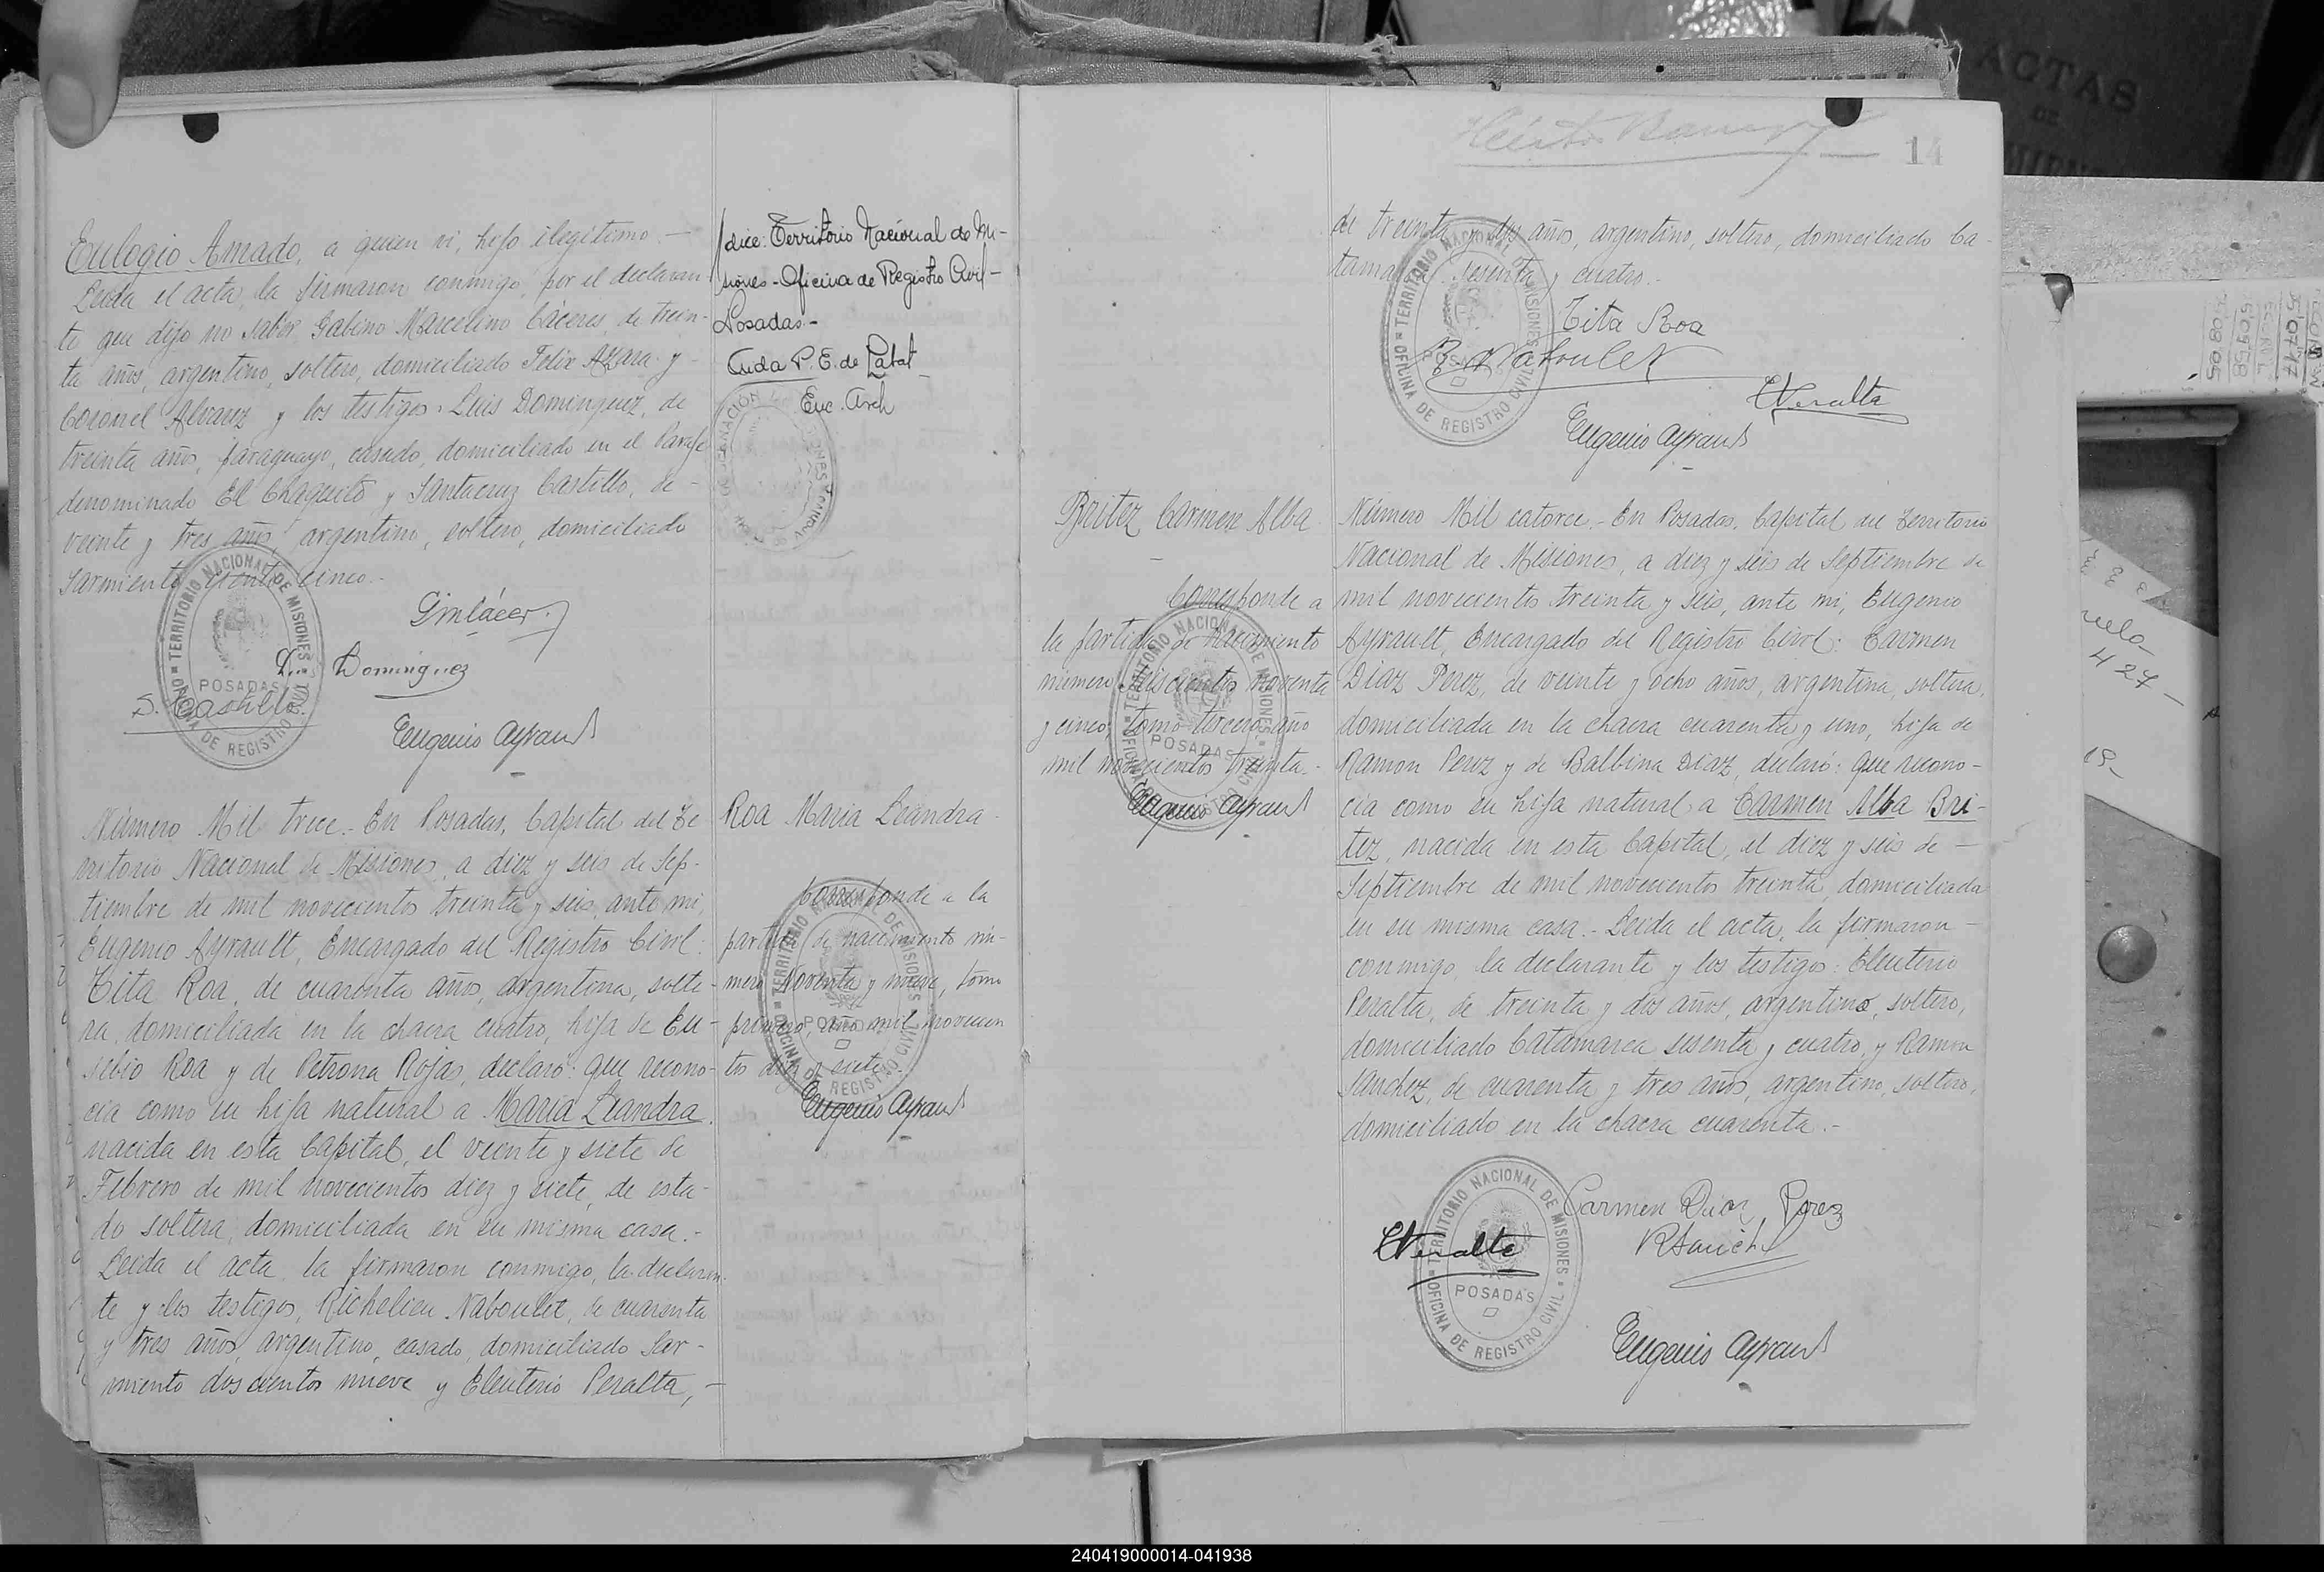 Eulogio Amado, a quien vi, hijo ilegitimo.-
Leida el acta, la firmaron conmigo, por el declaran-
te que dijo no saber Gabino Marcelino Cáceres, de trein-
ta años, argentino, soltero, domiciliado Felix Azara y
Coronel Alvarez y los testigos: Luis Dominguez, de
treinta años, paraguayo, casado, domiciliado en el Paraje
denominado El Chaquito y Santacruz Castillo, de-
veinte y tres años, argentino, soltero, domiciliado
Sarmiento ciento cinco.-
Luis Dominguez
S. Castillo
Eugenio Ayrault
TERRITORIO NACIONAL DE MISIONES
POSADAS
OFICINA DE REGISTRO CIVIL
dice: Territorio Nacional de Mi-
siones-Oficina de Registro Civil-
Posadas-
Enc. Arch
Número Mil trece.- En Posadas, Capital del Te
rritorio Nacional de Misiones, a diez y seis de Sep-
tiembre de mil novecientos treinta y seis, ante mi,
Eugenio Ayrault, Encargado del Registro Civil:
Tita Roa, de cuarenta años, argentina, solte-
ra, domiciliada en la chacra cuatro, hija de Eu-
sebio Roa y de Petrona Rojas, declaró: que recono-
cia como su hija natural a Maria Leandra,
nacida en esta Capital, el veinte y siete de
Febrero de mil novecientos diez y siete, de esta-
do soltera, domiciliada en su misma casa.-
Leida el acta, la firmaron conmigo, la declaran-
te y los testigos, Richelieu Naboulet, de cuarenta
y tres años, argentino, casado, domiciliado Sar-
miento doscientos nueve y Eleuterio Peralta,-
Roa Maria Leandra
Corresponde a la
partida de nacimiento nú-
mero Noventa y nueve, tomo
primero, año mil novecien
tos diez y siete.
Eugenio Ayrault
TERRITORIO NACIONAL DE MISIONES
POSADAS
OFICINA DE REGISTRO CIVIL
14
de treinta y dos años, argentino, soltero, domiciliado Ca-
tamarca sesenta y cuatro.-
Tita Roa
R. Naboulet
EPeralta
Eugenio Ayrault
TERRITORIO NACIONAL DE MISIONES
POSADAS
OFICINA DE REGISTRO CIVIL
Britez Carmen Alba
Corresponde a
la partida de nacimiento
número seiscientos noventa
y cinco, tomo tercero, año
mil novecientos treinta.-
Eugenio Ayrault
TERRITORIO NACIONAL DE MISIONES
POSADAS
OFICINA DE REGISTRO CIVIL
Número Mil catorce.- En Posadas, Capital del Territorio
Nacional de Misiones, a diez y seis de Septiembre de
mil novecientos treinta y seis, ante mi, Eugenio
Ayrault, Encargado del Registro Civil: Carmen
Diaz Perez, de veinte y ocho años, argentina, soltera,
domiciliada en la chacra cuarenta y uno, hija de
Ramon Perez y de Balbina Diaz, declaró: que recono-
cia como su hija natural a Carmen Alba Bri-
tez, nacida en esta Capital, el diez y seis de-
Septiembre de mil novecientos treinta, domiciliada
en su misma casa.- Leida el acta, la firmaron-
conmigo, la declarante y los testigos: Eleuterio
Peralta, de treinta y dos años, argentino, soltero,
domiciliado Catamarca sesenta y cuatro, y Ramon
Sánchez, de cuarenta y tres años, argentino, soltero,
domiciliado en la chacra cuarenta.-
Carmen Diaz Perez
EPeralta
RSanchez
Eugenio Ayrault
TERRITORIO NACIONAL DE MISIONES
POSADAS
OFICINA DE REGISTRO CIVIL
ACTAS
DE
427-
19-
240419000014-041938